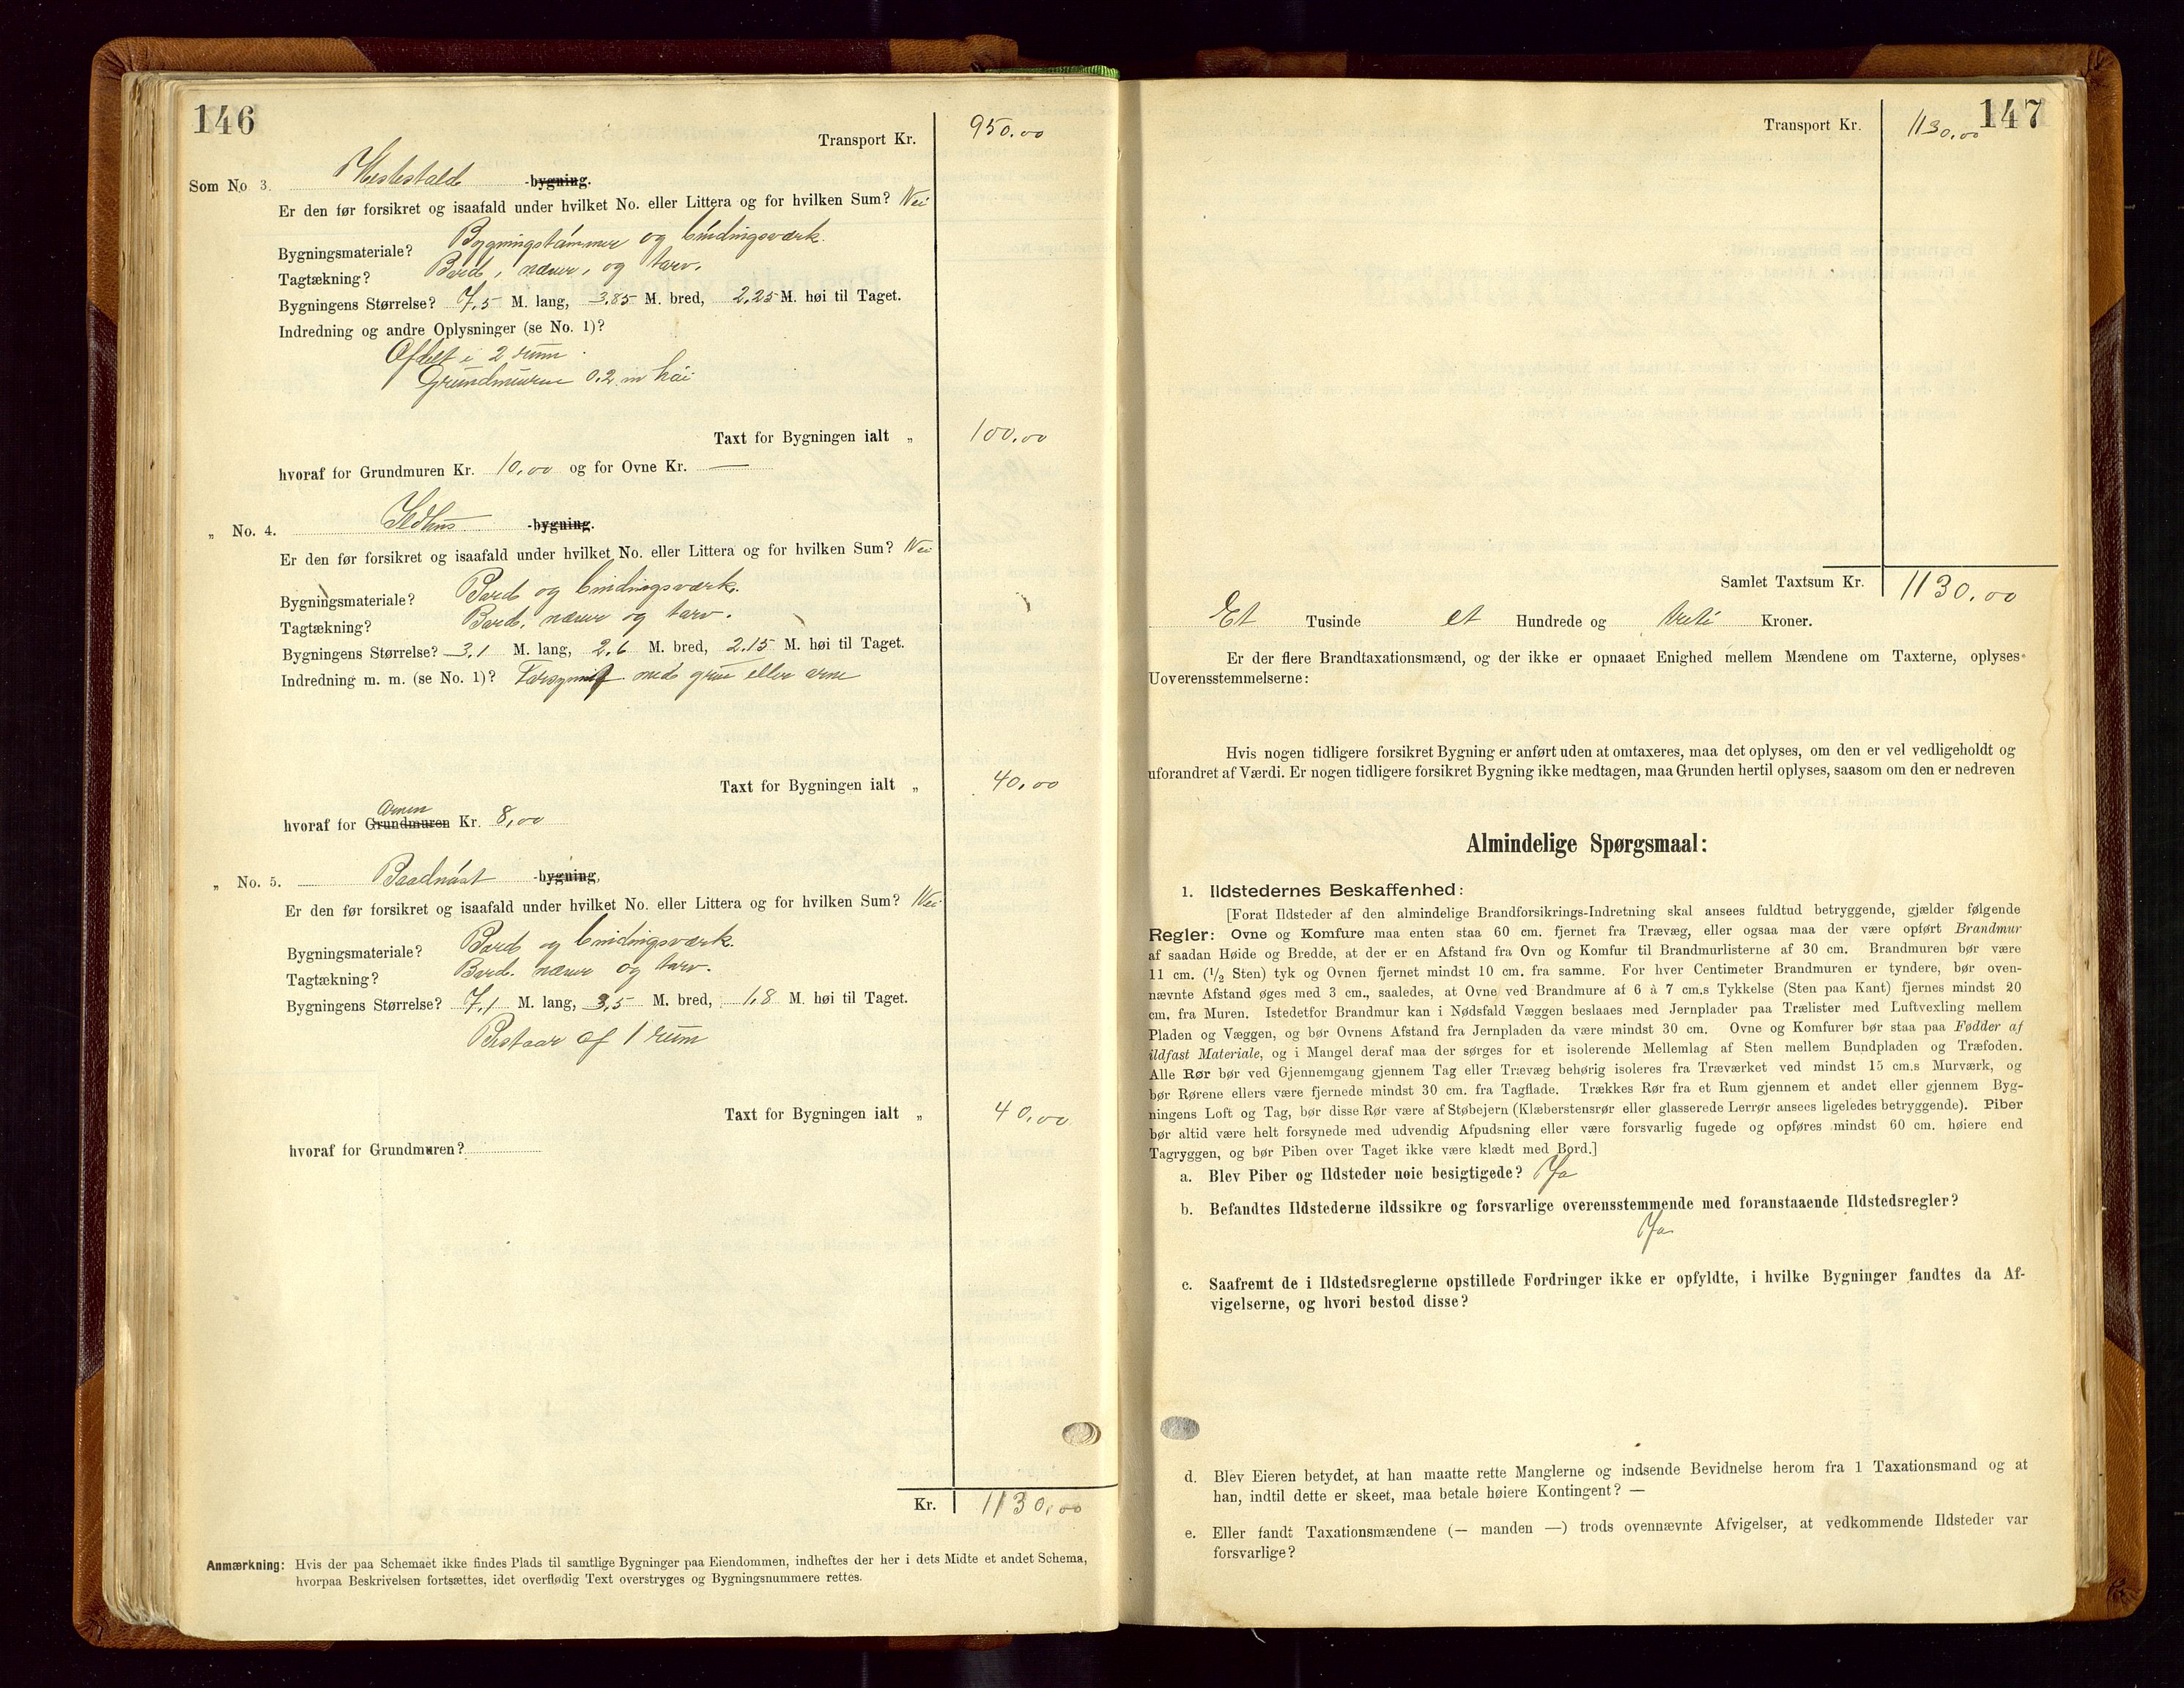 146
Transport Kr. 950.00
Som No 3. Hestestald -bygning.
Er den før forsikret og isaafald under hvilket No. eller Littera og for hvilken Sum? Nei
Bygningsmateriale? Bygningstømmer og bindingsværk.
Tagtækning? Bord, næver, og tørv.
Bygningens Størrelse? 7,5 M. lang, 3,85 M. bred, 2,25 M. høi til Taget.
Indredning og andre Oplysninger (se No. 1)?
Afdelt i 2 rum.
Grundmuren 0,2 m høi
Taxt for Bygningen ialt „ 100,00
hvoraf for Grundmuren Kr. 10,00 og for Ovne Kr. —
„ No. 4. Ildhus -bygning.
Er den før forsikret og isaafald under hvilket No. eller Littera og for hvilken Sum? Nei
Bygningsmateriale? Bord og bindingsværk.
Tagtækning? Bord, næver og tørv.
Bygningens Størrelse? 3,1 M. lang, 2,6 M. bred, 2,15 M. høi til Taget.
Indredning m. m. (se No. 1)? Forsynet med grue eller arne
Taxt for Bygningen ialt „ 40,00
Arnen
hvoraf for Grundmuren Kr. 8,00
„ No. 5. Baadnøst -bygning,
Er den før forsikret og isaafald under hvilket No. eller Littera og for hvilken Sum? Nei
Bygningsmateriale? Bord og bindingsværk.
Tagtækning? Bord. næver og tørv.
Bygningens Størrelse? 7,1 M. lang, 3,5 M. bred, 1,8 M. høi til Taget.
Bestaar af 1 rum
Taxt for Bygningen ialt „ 40,00
hvoraf for Grundmuren?
Kr. 1130,00
Anmærkning: Hvis der paa Schemaet ikke findes Plads til samtlige Bygninger paa Eiendommen, indheftes der her i dets Midte et andet Schema,
hvorpaa Beskrivelsen fortsættes, idet overflødig Text overstryges og Bygningsnummere rettes.
147
Transport Kr. 1130,00
Samlet Taxtsum Kr. 1130,00
Et Tusinde et Hundrede og treti Kroner.
Er der flere Brandtaxationsmænd, og der ikke er opnaaet Enighed mellem Mændene om Taxterne, oplyses
Uoverensstemmelserne:
Hvis nogen tidligere forsikret Bygning er anført uden at omtaxeres, maa det oplyses, om den er vel vedligeholdt og
uforandret af Værdi. Er nogen tidligere forsikret Bygning ikke medtagen, maa Grunden hertil oplyses, saasom om den er nedreven
Almindelige Spørgsmaal:
1. Ildstedernes Beskaffenhed:
[Forat Ildsteder af den almindelige Brandforsikrings-Indretning skal ansees fuldtud betryggende, gjælder følgende
Regler: Ovne og Komfure maa enten staa 60 cm. fjernet fra Trævæg, eller ogsaa maa der være opført Brandmur
af saadan Høide og Bredde, at der er en Afstand fra Ovn og Komfur til Brandmurlisterne af 30 cm. Brandmuren bør være
11 cm. (1/2 Sten) tyk og Ovnen fjernet mindst 10 cm. fra samme. For hver Centimeter Brandmuren er tyndere, bør oven-
nævnte Afstand øges med 3 cm., saaledes, at Ovne ved Brandmure af 6 à 7 cm.s Tykkelse (Sten paa Kant) fjernes mindst 20
cm. fra Muren. Istedetfor Brandmur kan i Nødsfald Væggen beslaaes med Jernplader paa Trælister med Luftvexling mellem
Pladen og Væggen, og bør Ovnens Afstand fra Jernpladen da være mindst 30 cm. Ovne og Komfurer bør staa paa Fødder af
ildfast Materiale, og i Mangel deraf maa der sørges for et isolerende Mellemlag af Sten mellem Bundpladen og Træfoden.
Alle Rør bør ved Gjennemgang gjennem Tag eller Trævæg behørig isoleres fra Træværket ved mindst 15 cm.s Murværk, og
bør Rørene ellers være fjernede mindst 30 cm. fra Tagflade. Trækkes Rør fra et Rum gjennem et andet eller gjennem Byg-
ningens Loft og Tag, bør disse Rør være af Støbejern (Klæberstensrør eller glasserede Lerrør ansees ligeledes betryggende). Piber
bør altid være helt forsynede med udvendig Afpudsning eller være forsvarlig fugede og opføres mindst 60 cm. høiere end
Tagryggen, og bør Piben over Taget ikke være klædt med Bord.]
a. Blev Piber og Ildsteder nøie besigtigede? Ja
b. Befandtes Ildstederne ildssikre og forsvarlige overensstemmende med foranstaaende Ildstedsregler?
Ja
c. Saafremt de i Ildstedsreglerne opstillede Fordringer ikke er opfyldte, i hvilke Bygninger fandtes da Af-
vigelserne, og hvori bestod disse?
d. Blev Eieren betydet, at han maatte rette Manglerne og indsende Bevidnelse herom fra 1 Taxationsmand og at
han, indtil dette er skeet, maa betale høiere Kontingent? —
e. Eller fandt Taxationsmændene (— manden —) trods ovennævnte Afvigelser, at vedkommende Ildsteder var
forsvarlige?